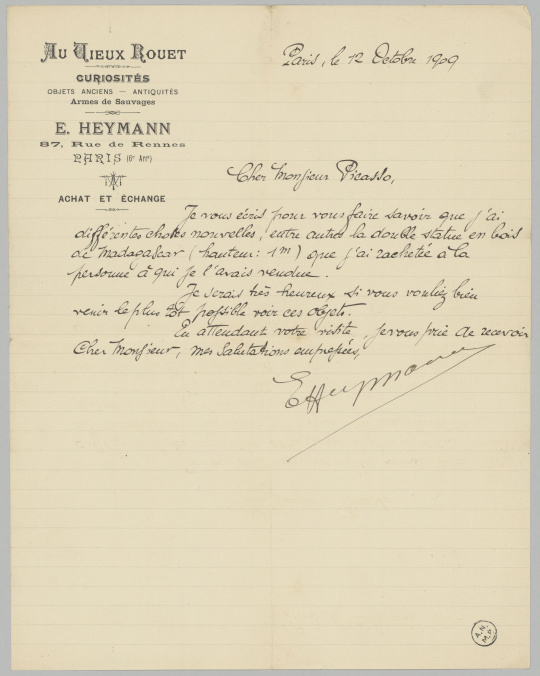 AU VIEUX ROUET
CURIOSITÉS
OBJETS ANCIENS — ANTIQUITÉS
Armes de Sauvages
E. HEYMANN
87, Rue de Rennes
PARIS (6e Arrt)
ACHAT ET ÉCHANGE
Paris, le 12 Octobre 1909
Cher Monsieur Picasso,
Je vous écris pour vous faire savoir que j'ai
différentes choses nouvelles, entre autres la double statue en bois
de Madagascar (hauteur: 1m) que j'ai rachetée à la
personne à qui je l'avais vendue.
Je serais très heureux si vous vouliez bien
venir le plus tôt possible voir ces objets.
En attendant votre visite, je vous prie de recevoir
Cher Monsieur, mes salutations empressées,
EHeymann
A.N.
M.P.